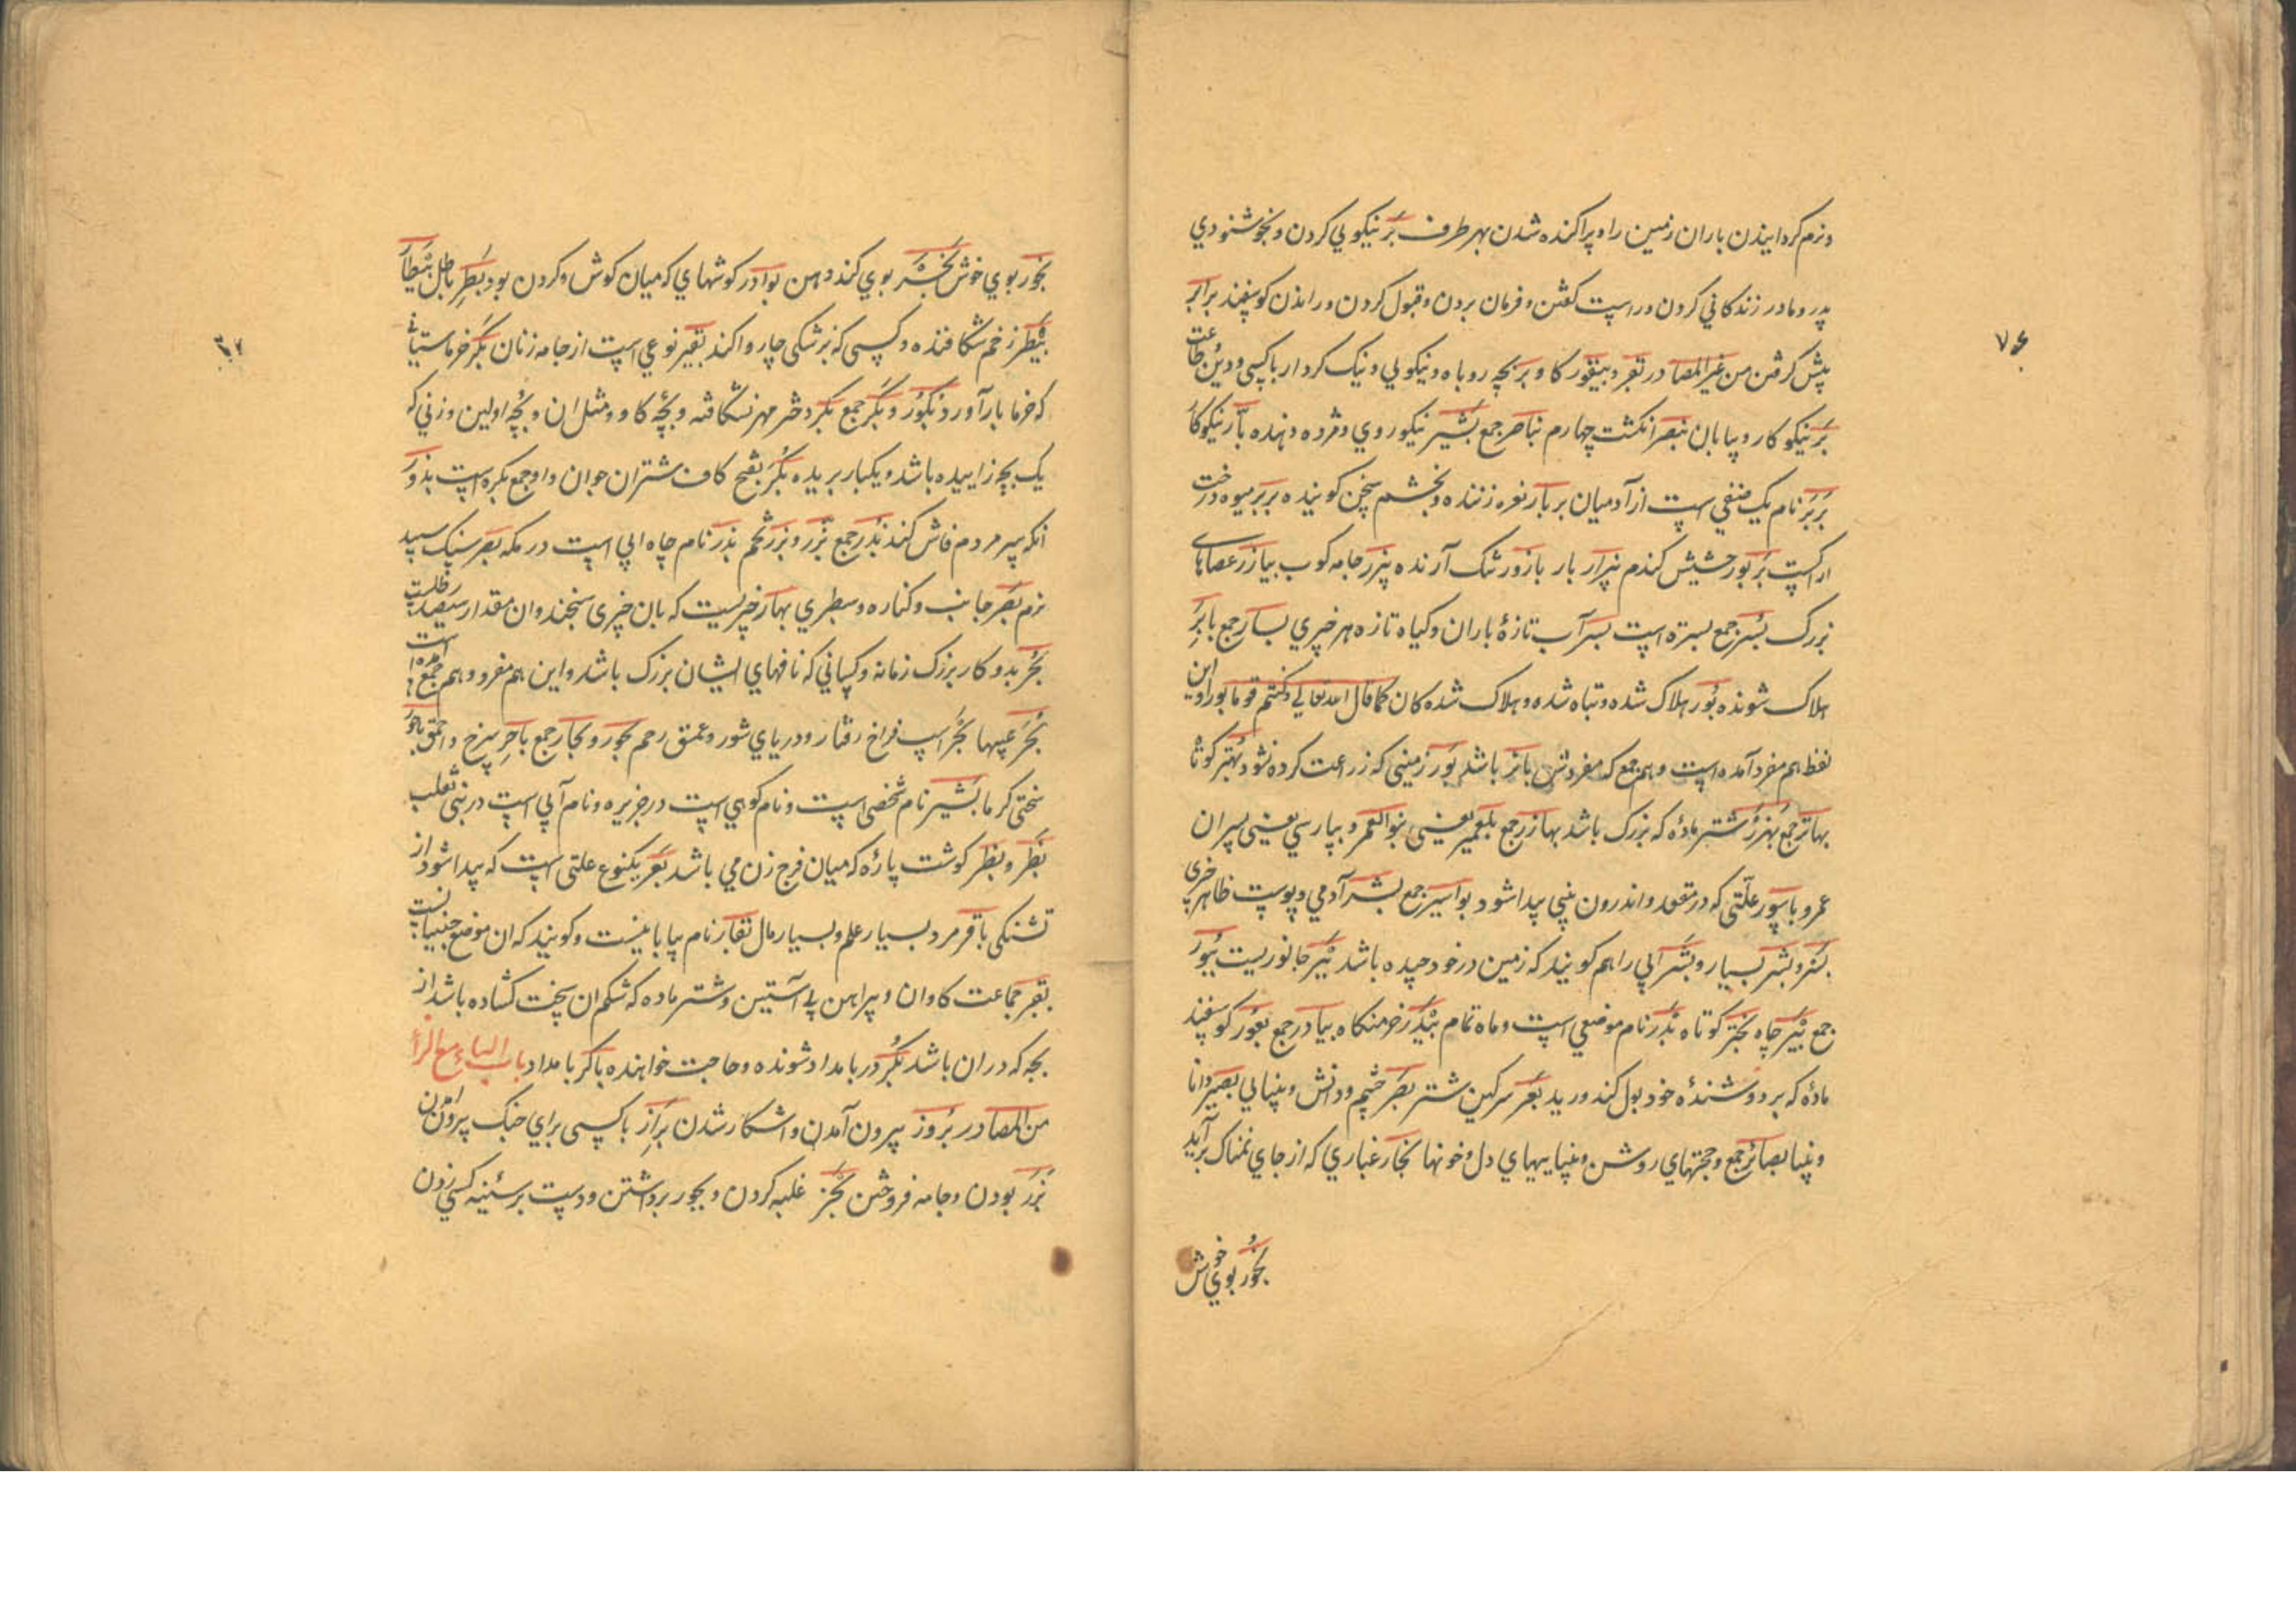 ونرم کردانیدن باران زمین را و پراکنده شدن بهر طرف بَرّ نیکویی کردن و بخوشنودی
پدر و مادر زندکانی کردن و راست کفتن و فرمان بردن و قبول کردن و راندن کوسفند برابر
پیش کرفتن من غیر المصادر بقر و بیقور کاو بر بچه روباه و نیکویی و نیک کردار باکسی و دین طاعت
بَرّ نیکو کار و بیابان بنصر انکشت چهارم بناصر جمع بشیر نیکو روی و مژده دهنده بارّ نیکوکار
بَربَر نام یک صنفی است از آدمیان بربار نعره زننده و بخشم سخن کوینده بربر میوه درخت
اراکست بربور حشیش کندم بیزار باز بازور شک آرنده بیزر جامه کوب بیازر عصاهای
بزرک بُسر جمع بسره است بسر آب تازهٔ باران و کیاه تازه هر چیزی بسار جمع بابر
هلاک شونده بُور هلاک شده و تباه شده و هلاک شده کان کما قال الله تعالی وکنتم قوما بورا و این
لفظ هم مفرد آمده است و هم جمع که مفردش بائر باشد بَور زمینی که زراعت کرده نشود بُهتر کوتا
بهاتر جمع بُهزر شتر مادهٔ که بزرک باشد بهازر جمع بلعمیر یعنی بنو العمر و بپارسی یعنی پسران
عمر و باسور علّتی که در مقعد و اندرون بینی پیدا شود بواسیر جمع بشر آدمی و پوست ظاهر چیزی
بثر و بثر بسیار و بثر آبی را هم کویند که زمین در خود چیده باشد ببر جانوریست ببور
جمع بئر چاه بحتر کوتاه بدر نام موضعی است و ماه تمام بیدر خرمنکاه بیادر جمع بعور کوسفند
مادهٔ که بر دوشندهٔ خود بول کند و رید بعر سرکین شتر بصر چشم و دانش و بینایی بصیر دانا
و بینا بصائر جمع و حجتهای روشن و بیناییهای دل و خونها بخار غباری که از جای نمناک برآید
بخور بوی خوش
۷۶
بخور بوی خوش بخشر بوی کند دهن بوادر کوشهای که میان کوش و کردن بود بَطر باطل بیطار
بیطر زخم شکافنده و کسی که پزشکی چاروا کند بقیر نوعی است از جامه زنان بکر خرماستانی
که خرما بار آورد بکور و بکر جمع بکر دختر مهر نشکافته و بچّه کاو و مثل ان و بچّه اولین و زنی که
یک بچه زاییده باشد و یکبار بریده بکر بفتح کاف شتران جوان و او جمع بکره است بذور
انکه سر مردم فاش کند بُذر جمع بزر و بزر تخم بذر نام چاه ابی است در مکه بصر سنک سپید
نرم بصر جانب و کناره و سطبری بهار چیزیست که بان چیزی سنجند و ان مقدار سیصد رطلست
بُجر بد و کار بزرک زمانه و کسانی که نافهای ایشان بزرک باشد و این هم مفرد و هم جمع آمده است
بُجَر عیبها بحر اسب فراخ رفتار و دریای شور و عمق رحم بحور و بحار جمع باحر سرخ و احمق باحور
سختی کرما بشیر نام شخصی است و نام کوهی است در جزیره و نام آبی است در بنی تغلب
بَظر و بظر کوشت پارهٔ که میان فرج زن می باشد بَغَر یکنوع علتی است که پیدا شود از
تشنکی باقر مرد بسیار علم و بسیار مال بقار نام بیابانیست و کویند که ان موضع جنیانست
بقر جماعت کاوان و پیراهن بی آستین و شتر ماده که شکم ان سخت کشاده باشد از
بچه که در ان باشد بکُر در بامداد شونده و حاجت خواهنده باکر بامداد باب الباء مع الزا
من المصادر بُروز بیرون آمدن و اشکار شدن بِراز باکسی برای جنک بیرون امدن
بَزر بودن و جامه فروختن بَجز غلبه کردن و بجور برداشتن و دست بر سینه کسی زدن